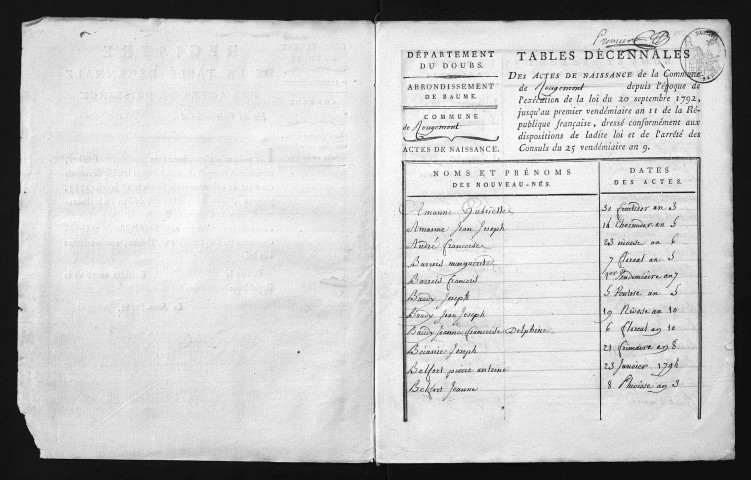 Premier
DÉPARTEMENT
DU DOUBS.
ARRONDISSEMENT
DE BAUME.
COMMUNE
de Rougemont
ACTES DE NAISSANCE.
TABLES DÉCENNALES
DES ACTES DE NAISSANCE de la Commune
de Rougemont depuis l'époque de
l'exécution de la loi du 20 septembre 1792,
jusqu'au premier vendémiaire an 11 de la Ré-
publique française, dressé conformément aux
dispositions de ladite loi et de l'arrêté des
Consuls du 25 vendémiaire an 9.
NOMS ET PRÉNOMS
DES NOUVEAU-NÉS.
DATES
DES ACTES.
Amanne Gabrielle 30 fructidor an 3
Amanne Jean Joseph 14 thermidor an 5
André francoise 23 nivose an 6
Barrois marguerite 7 floreal an 5
Barrois francois 1er Vendemiaire an 7
Baudy Joseph 5 Pluviose an 5
Baudy Jean Joseph 19 Nivose an 10
Baudy Jeanne francoise Delphine 6 floreal an 10
Joseph 21 frimaire an 8
Belfort pierre antoine 23 Janvier 1794
Belfort Jeanne 8 Pluviose an 3